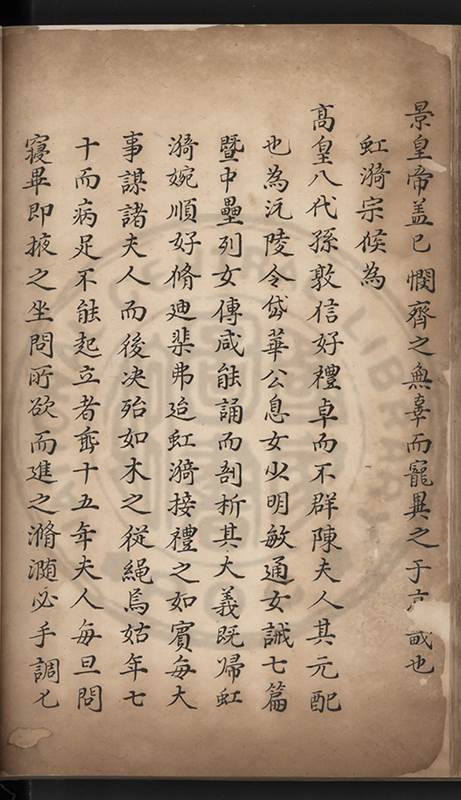 景皇帝盖已憫齊之無辜而寵異之于六或也
虹漪宗候為
髙皇八代孫敦信好禮卓而不群陳夫人其元配
也為沅陵令岱華公息女少明敏通女誡七篇
暨中壘列女傳咸能誦而剖析其大義既歸虹
漪婉順好脩廸棐弗迨虹漪接禮之如賓每大
事謀諸夫人而後决殆如木之從繩焉姑年七
十而病足不能起立者幾十五年夫人每旦問
寢畢即掖之坐問所欲而進之滫瀡必手調匕